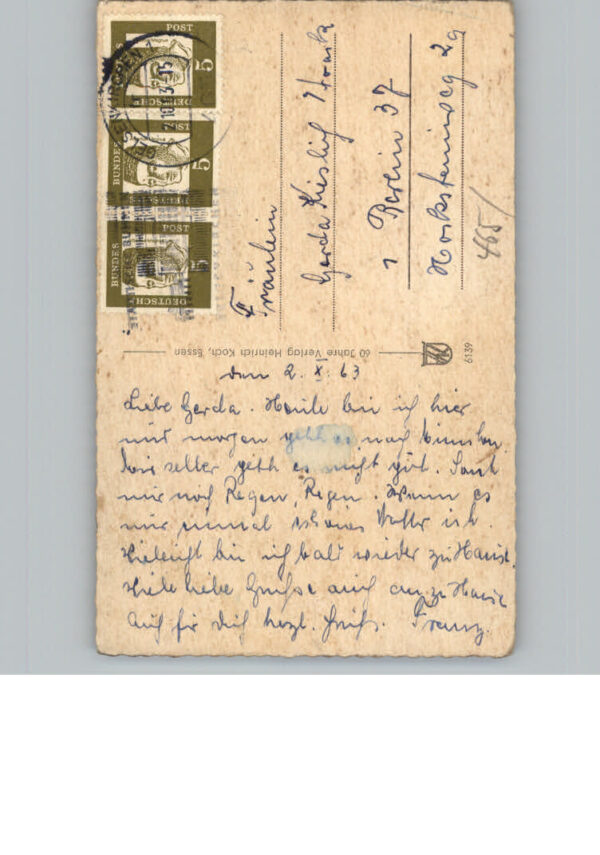 den 2. X. 63
Liebe Gerda. Heute bin ich hier
und morgen geht es nach
geht es nicht gut. Sonst
nur noch Regen, Regen. Wenn es
nur einmal schönes Wetter ist.
Vieleicht bin ich bald wieder zu Hause.
Viele liebe Grüsse auch an zu Hause
Auch für Dich herzl. Grüss. Franz.
Fräulein
Gerda
1 Berlin 37
2g
465/
60 Jahre Verlag Heinrich Koch, Essen
6139
GELSENKIRCHEN
POST
5
DEUTSCHE
BUNDES
POST
5
DEUTSCHE
BUNDES
POST
5
DEUTSCHE